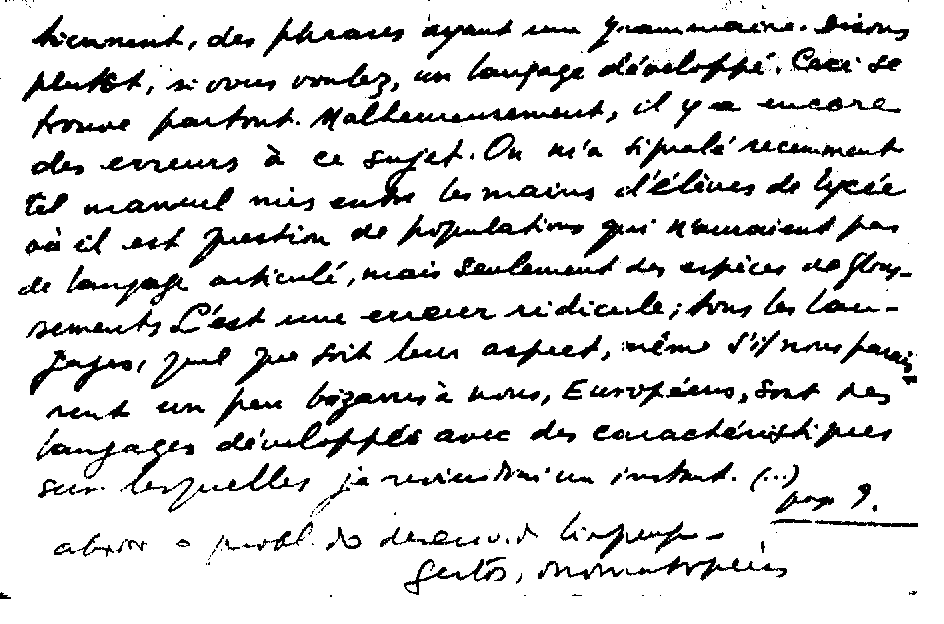 tiennent, des phrases ayant une grammaire. Disons
plutôt, si vous voulez, un langage développé. Ceci se
trouve partout. Malheureusement, il y a encore
des erreurs à ce sujet. On m'a signalé recemment
tel manuel mis entre les mains d'élèves de lycée
où il est question de populations qui n'auraient pas
de langage articulé, mais seulement des espèces de glous-
sements. C'est une erreur ridicule; tous les lan-
gages, quel que soit leur aspect, même s'il nous parais-
sent un peu bizarres à nous, Européens, sont des
langages développés avec des caractéristiques
sur lesquelles je reviendrai un instant. (...)
pag 9.
o probl. do desenv. d
Gestos, onomatopeias